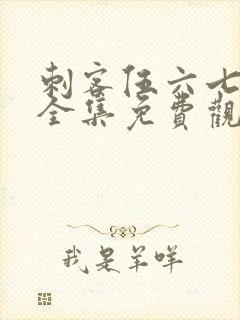 刺客伍六七
全集免費觀
我是羊咩